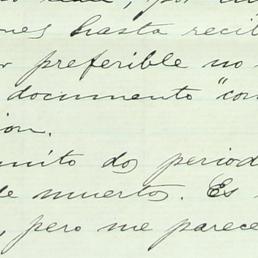 ones hasta recib
preferible no
documento "con
ion.
mito dos period
de muertos. Es
, pero me parece